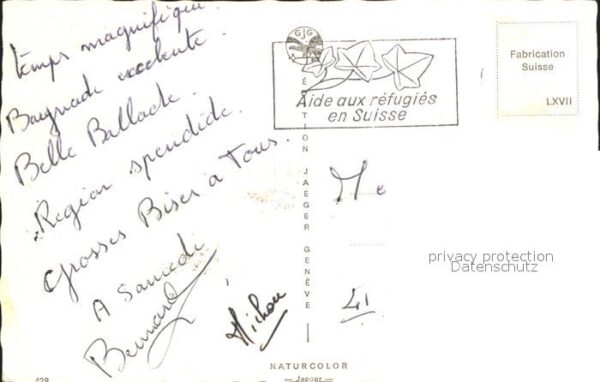 temps magnifique.
Baignade excelente.
Belle Ballade.
Region spendide.
Grosses Bises a Tous.
A Samedi
Bernard
Michou
GJG
Aide aux réfugiés
en Suisse
EDITION JAEGER GENÈVE
Fabrication
Suisse
LXVII
Me
41
privacy protection
Datenschutz
NATURCOLOR
— Jaeger —